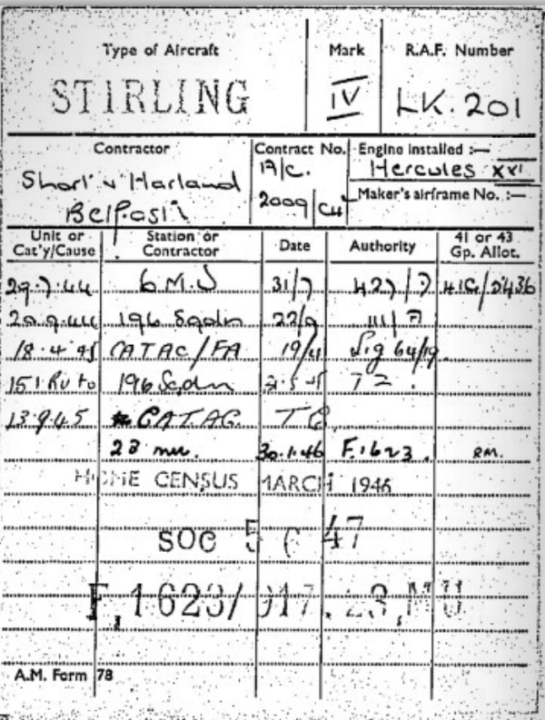 Type of Aircraft Mark R.A.F. Number
STIRLING IV LK.201
Contractor Contract No. Engine Installed :—
A/C. Hercules XVI
Short & Harland Maker's airframe No. :—
Belfast 2009/C4
Unit or Cat'y/Cause Station or Contractor Date Authority 41 or 43 Gp. Allot.
29.7.44 6 M.U 31/7 427/7 41G/
20.9.44 196 Sqdn 22/9 111/
18.4.45 CATAC/FA 19/4 Sig 64/19
196 Sqdn
13.9.45 CATAG
23 mu. 30.1.46 F.1623. RM.
HOME CENSUS MARCH 1946
SOC 5 6 47
F.1623/ 23 MU
A.M. Form 78